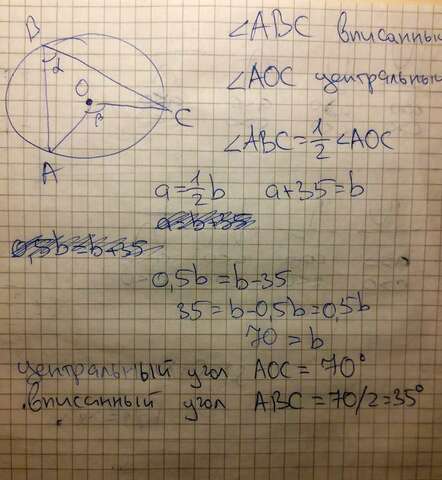 B
α
O
β
C
A
∠ABC вписанный
∠AOC центральный
∠ABC = 1/2 ∠AOC
a = 1/2 b a+35=b
0,5b = b-35
35 = b-0,5b = 0,5b
70 = b
центральный угол AOC = 70°
вписанный угол ABC = 70/2 = 35°